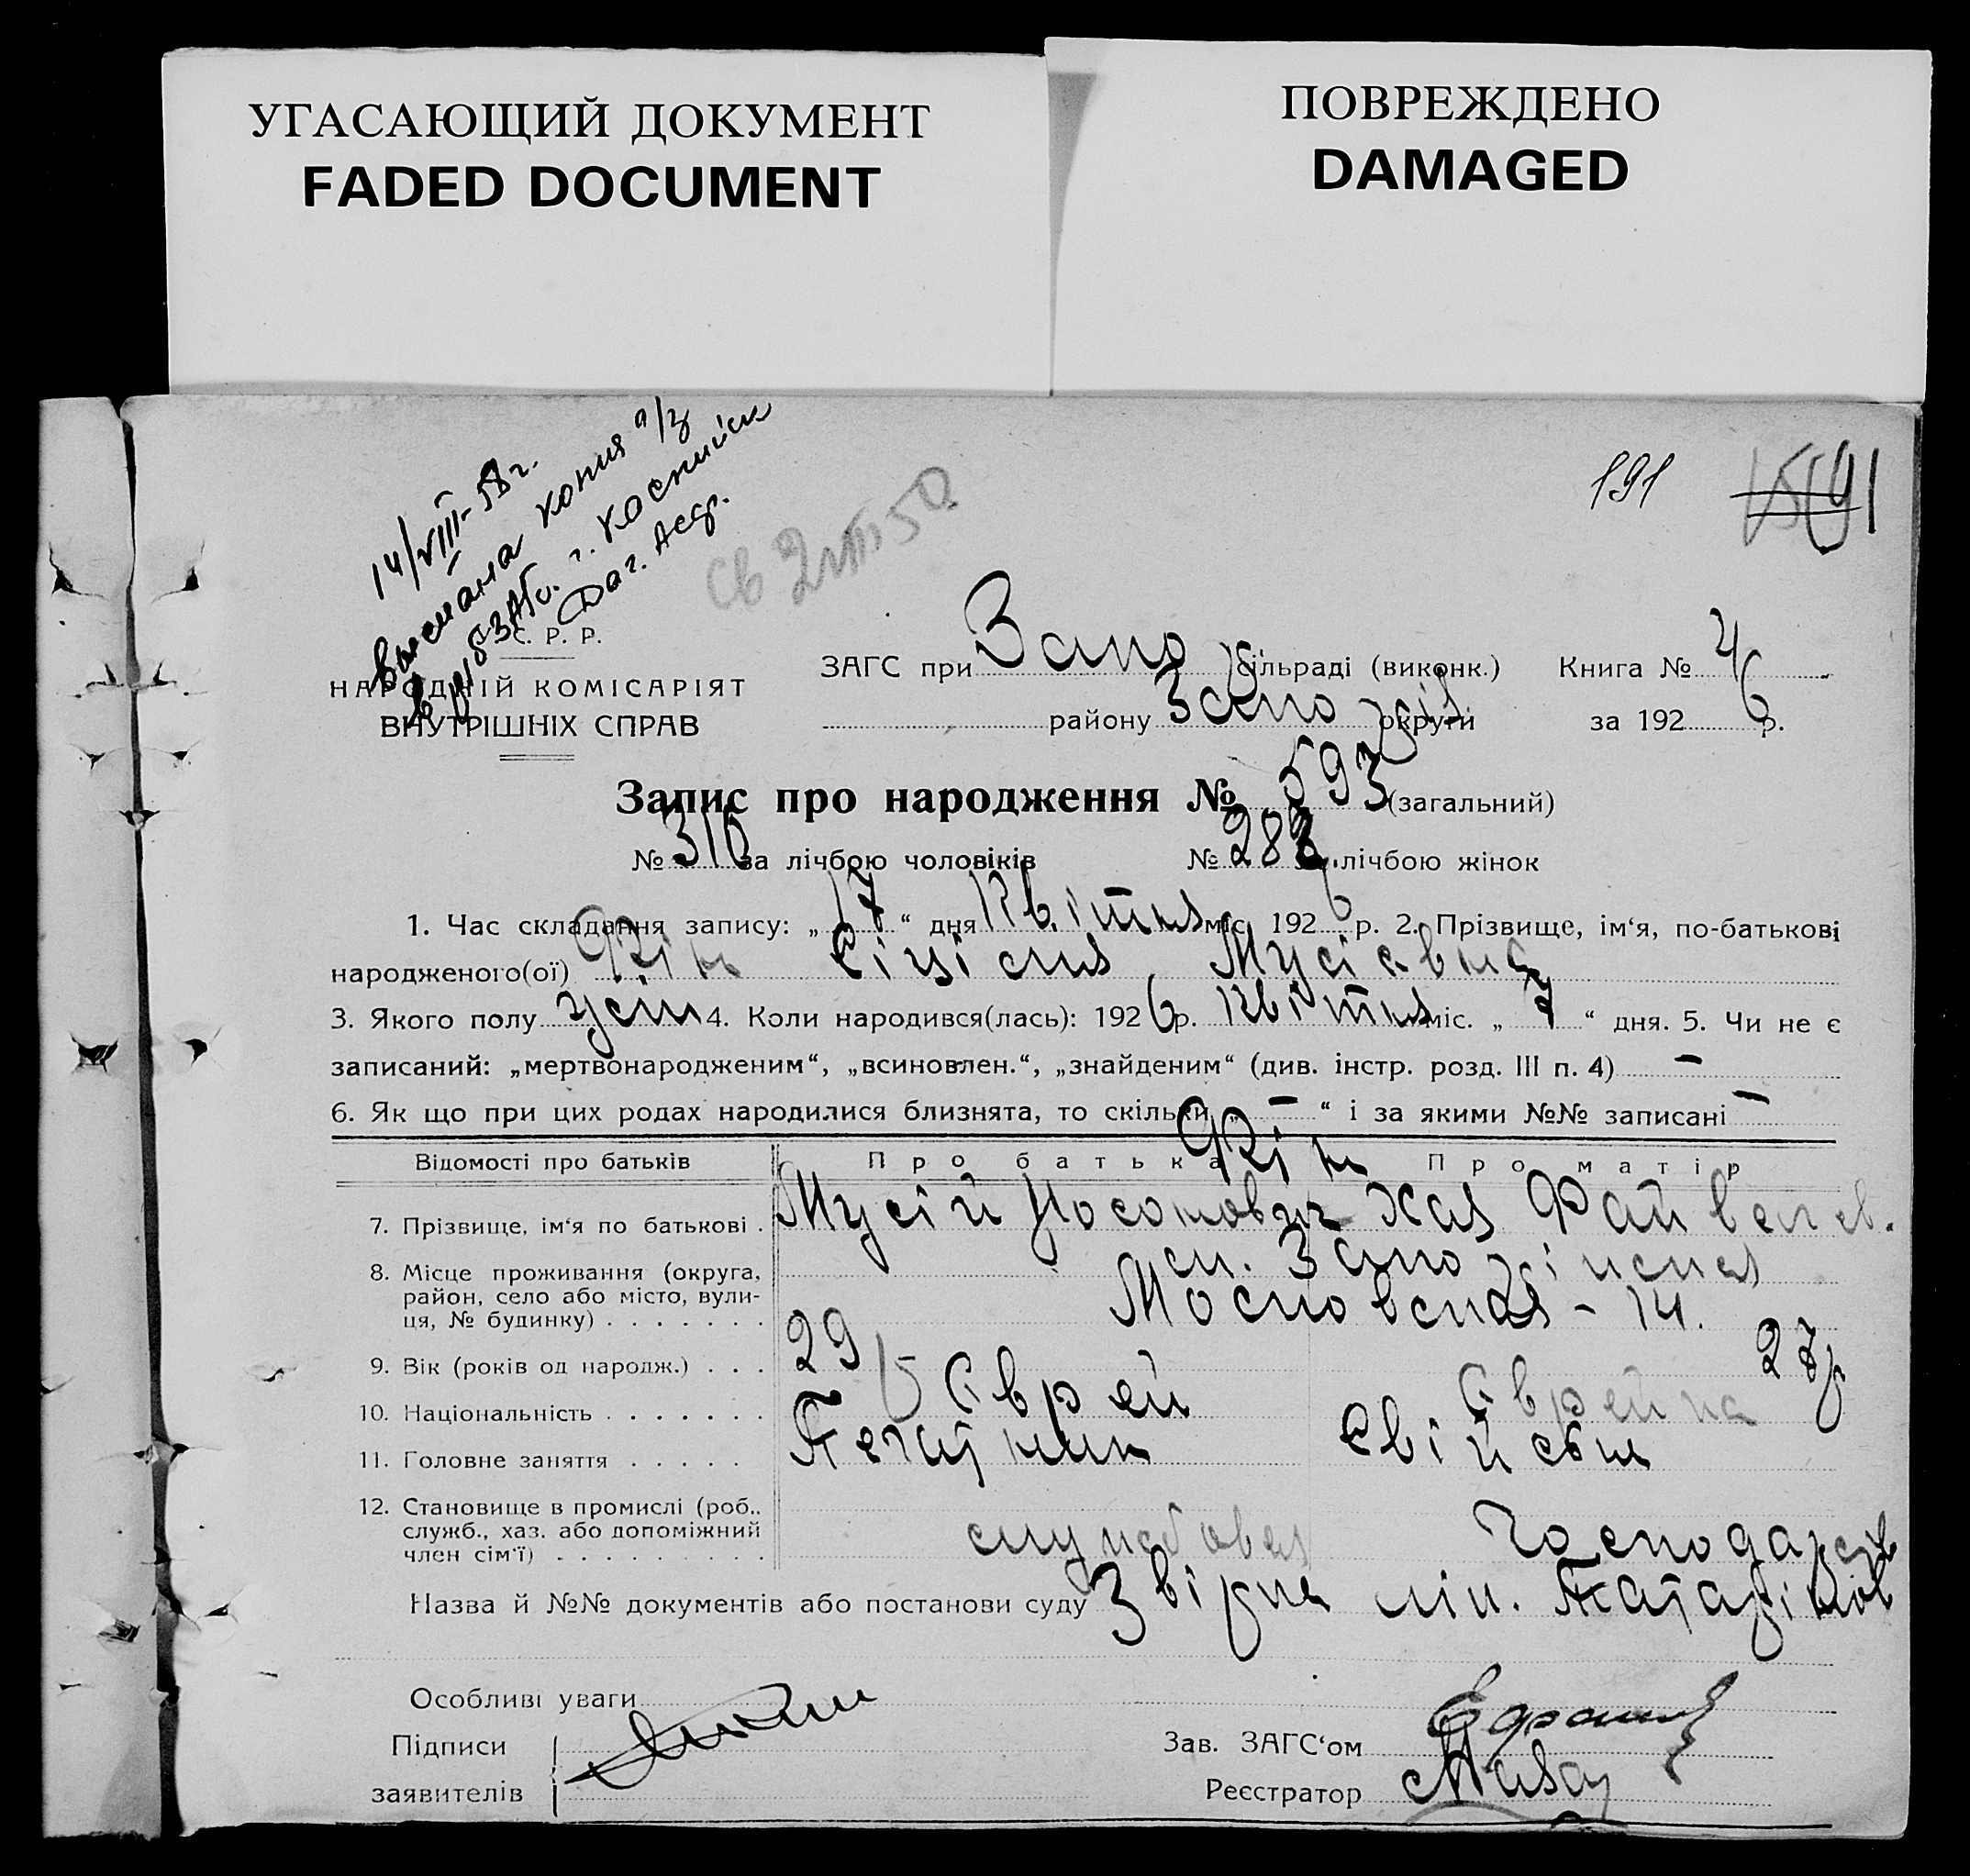 УГАСАЮЩИЙ ДОКУМЕНТ
FADED DOCUMENT
ПОВРЕЖДЕНО
DAMAGED
14/VIII-58 г.
выслана копия а/з
г. Каспийск
Даг. Асср.
191
С. Р. Р.
НАРОДНІЙ КОМІСАРІЯТ
ВНУТРІШНІХ СПРАВ
ЗАГС при Запо сільраді (виконк.) Книга № 4
району Запоріз округи за 1926 р.
Запис про народження № 593 (загальний)
№ 310 за лічбою чоловіків № 283 лічбою жінок
1. Час складання запису: „17“ дня Квітня міс. 1926 р. 2. Прізвище, ім‘я, по-батькові
народженого(ої) Фін Сіцілія Мусієвна
3. Якого полу жін 4. Коли народився(лась): 1926 р. Квітня міс. „7“ дня. 5. Чи не є
записаний: „мертвонародженим“, „всиновлен.“, „знайденим“ (див. інстр. розд. III п. 4) –
6. Як що при цих родах народилися близнята, то скільки „–“ і за якими №№ записані –
Відомості про батьків Про батька Фін Про матір
7. Прізвище, ім‘я по батькові . Мусій Носонович Хая Файвелев.
8. Місце проживання (округа, м. Запоріжжя
район, село або місто, вули-
ця, № будинку) . . . . . . . Московская - 14.
9. Вік (років од народж.) . . . 29 27р
10. Національність . . . . . . . Єврей Єврейка
11. Головне заняття . . . . . Печатник
12. Становище в промислі (роб.,
служб., хаз. або допоміжний
член сім‘ї) . . . . . . . . . службовая господарств
Назва й №№ документів або постанови суду Звірка
Особливі уваги
Підписи
заявителів
Зав. ЗАГС‘ом
Реєстратор